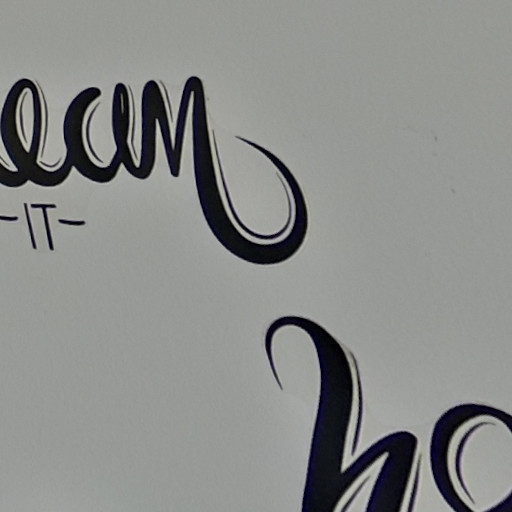 ean
-IT-
ho